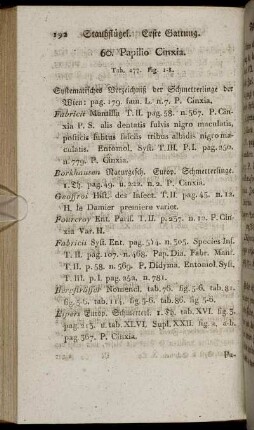 192 Staubflügel. Erste Gattung.
60. Papilio Cinxia.
Tab. 277. fig. 1-8.
Systematisches Verzeichniß der Schmetterlinge der
Wien: pag. 179. fam. L. n. 7. P. Cinxia.
Fabricii Mantissa T. II. pag. 58. n. 567. P. Cin-
xia P. S. alis dentatis fulvis nigro maculatis,
posticis subtus fasciis tribus albidis nigro ma-
culatis. Entomol. Syst. T. III. P. I. pag. 250.
n. 779. P. Cinxia.
Borkhausen Naturgesch. Europ. Schmetterlinge.
1. Th. pag. 49. n. 2. P. Cinxia.
Geoffroi Hist. des Insect. T. II. pag. 45. n. 12.
H. le Damier premiere variet.
Fourcroy Ent. Paris. T. II. p. 237. n. 12. P. Cin-
xia Var. H.
Fabricii Syst. Ent. pag. 504. n. 305. Species Ins.
T. II. pag. 107. n. 468. Pap. Dia. Fabr. Mant.
T. II. p. 58. n. 569. P. Didyma. Entomol. Syst.
T. III. p. I. pag. n. 781.
Nomencl. tab. 76. fig. 5-6. tab. 81.
fig. 5-6. tab. 114. fig. 5-6. tab. 86. fig. 5-6.
Espers Europ. Schmetterl. 1. Th. tab. XVI. fig. 3.
pag. 215. tab. XLVI. Supl. XXII. fig. a, a-b.
pag. 367. P. Cinxia.
Pa-